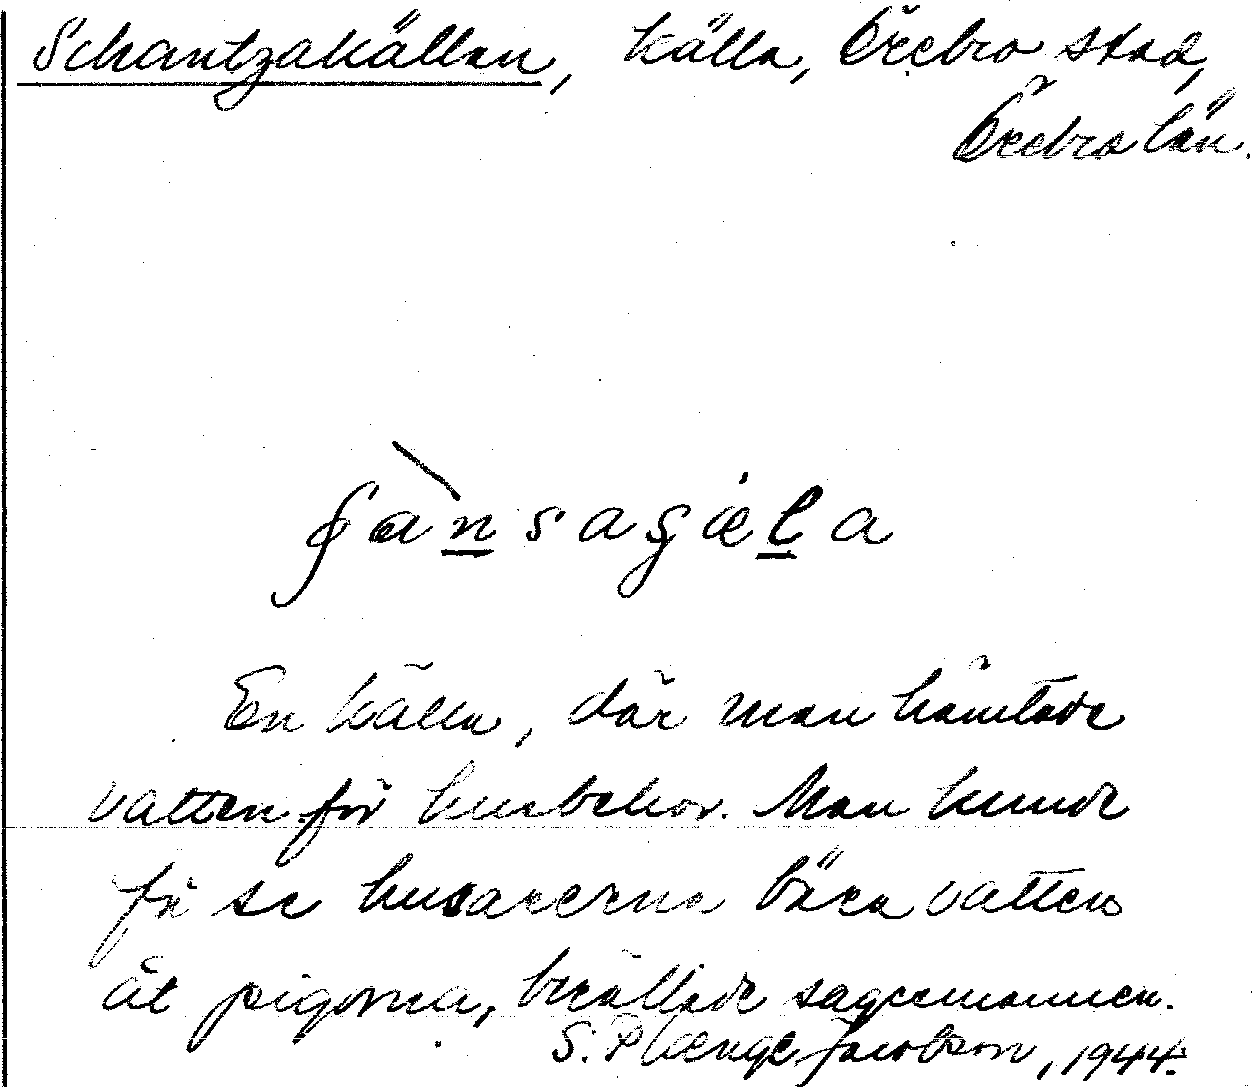 Schantzakällan, källa, Örebro stad,
Örebro län.
En källa, där man hämtade
vatten för husbehov. Man kunde
få se husarerna bära vatten
åt pigorna, berättade sagesmannen.
S. Plænge Jacobson, 1944.